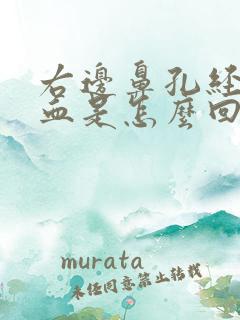 右邊鼻孔经
血是怎麼回
murata
未经同意禁止转载